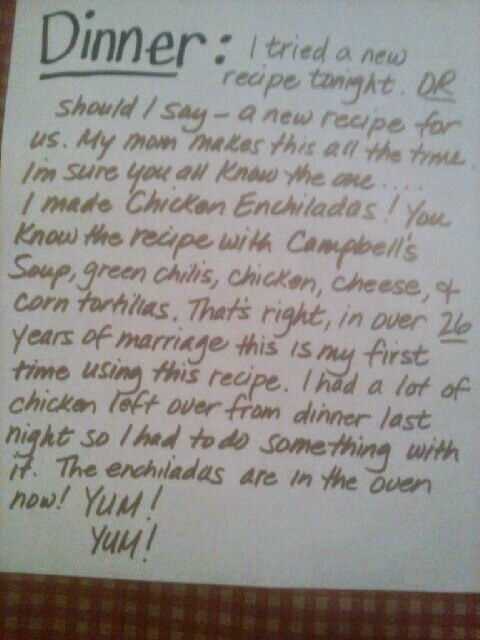 Dinner: I tried a new
recipe tonight. OR
should I say - a new recipe for
us. My mom makes this all the time.
I'm sure you all know the one....
I made Chicken Enchiladas! You
know the recipe with Campbell's
Soup, green chilis, chicken, cheese, &
corn tortillas. That's right, in over 26
years of marriage this is my first
time using this recipe. I had a lot of
chicken left over from dinner last
night so I had to do something with
it. The enchiladas are in the oven
now! YUM!
YUM!